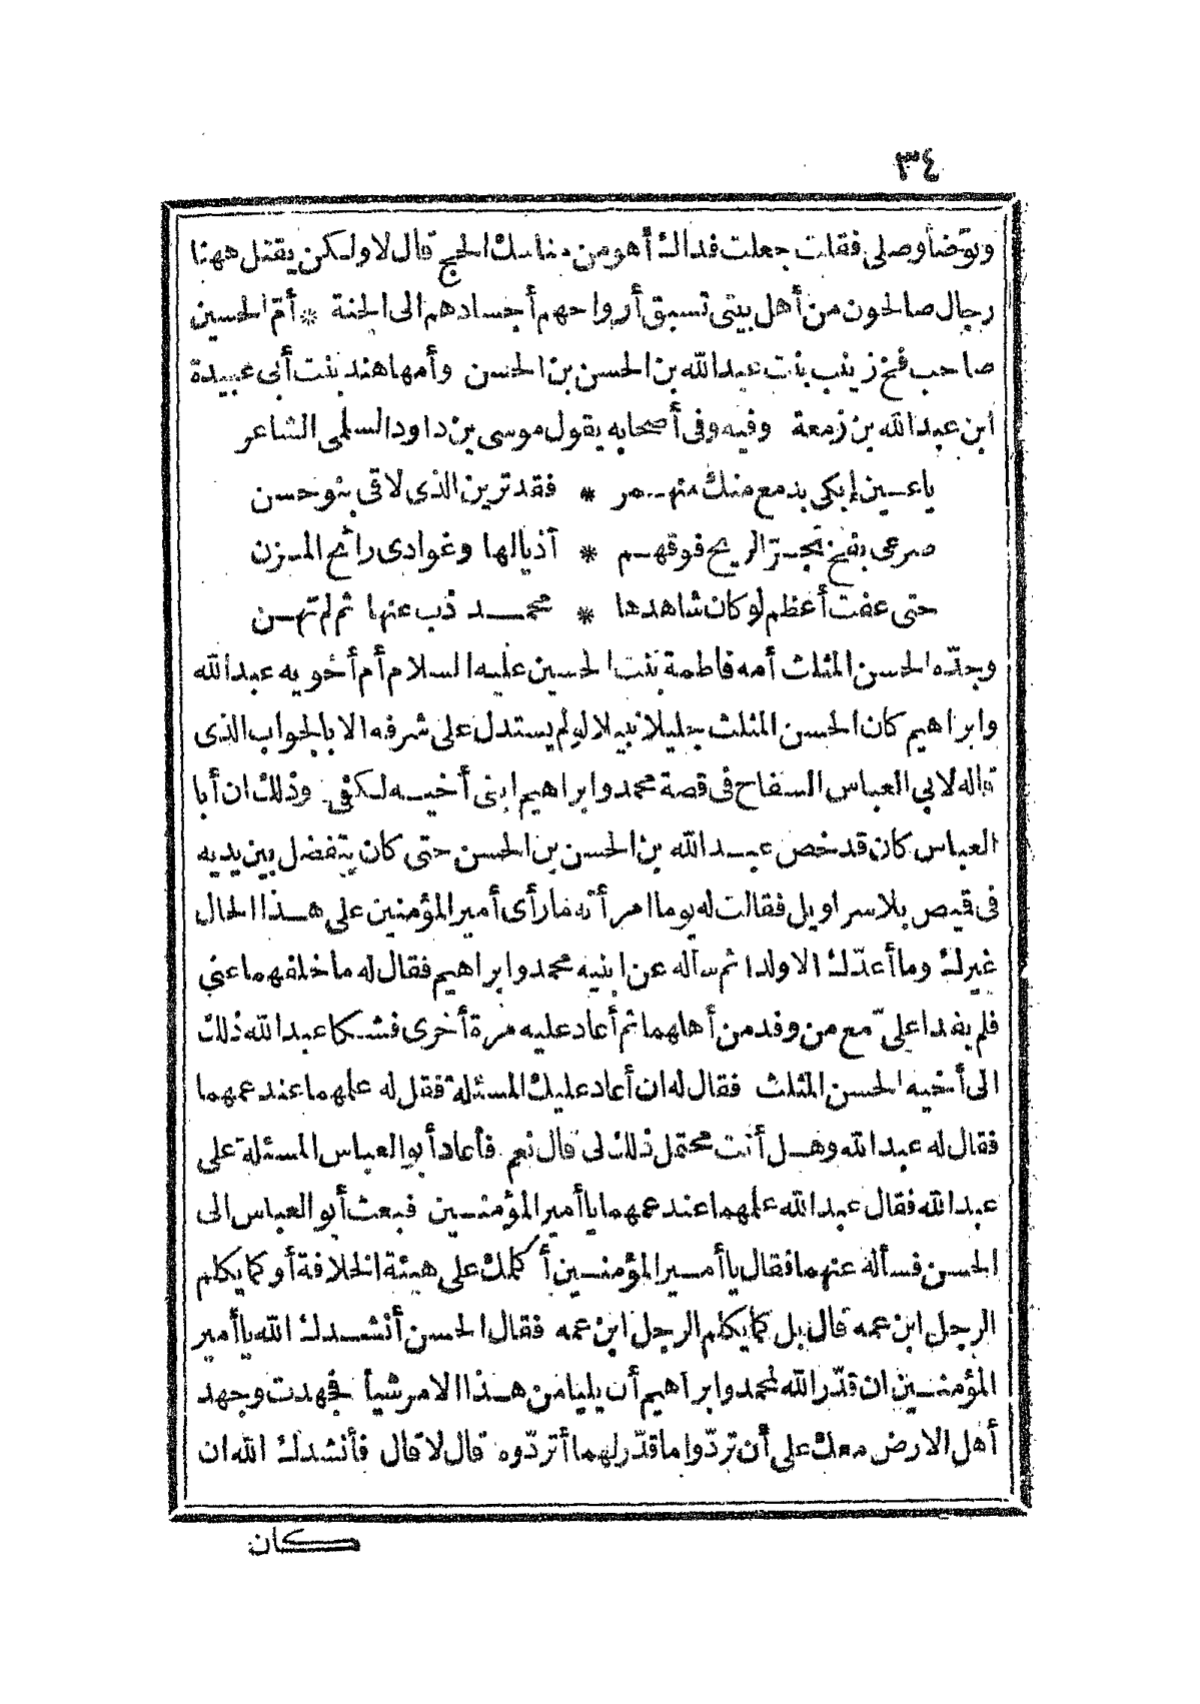 ٣٤
وتوضأ وصلى فقلت جعلت فداك أهو من مناسك الحج قال لا ولكن يقتل ههنا
رجال صالحون من أهل بيتى تسبق أرواحهم أجسادهم الى الجنة * أمّ الحسين
صاحب فخ زينب بنت عبدالله بن الحسن بن الحسن وأمها هند بنت أبى عبيدة
ابن عبدالله بن زمعة وفيه وفى أصحابه يقول موسى بن داود السلمى الشاعر
ياعين إبكى بدمع منك منهمر * فقد ترين الذى لاقى بنو حسن
صرعى بفخ تجرّ الريح فوقهم * آذيالها وغوادى رائح المزن
حتى عفت أعظم لو كان شاهدها * محمد ذب عنها ثم لم تهن
وجدّه الحسن المثلث أمه فاطمة بنت الحسين عليه السلام أم أخويه عبدالله
وابراهيم كان الحسن المثلث جليلا نبيلا لو لم يستدل على شرفه الا بالجواب الذى
قاله لابي العباس السفاح فى قصة محمد وابراهيم ابنى أخيه لكفى وذلك ان أبا
العباس كان قد خص عبدالله بن الحسن بن الحسن حتى كان يتفضل بين يديه
فى قيص بلا سراويل فقالت له يوما امرأته ما رأى أمير المؤمنين على هذا الحال
غيرك وما أعدّك الا ولدا ثم سأله عن ابنيه محمد وابراهيم فقال له ما خلفهما عني
فلم يفدا علىّ مع من وفد من أهلهما ثم أعاد عليه مرة أخرى فشكا عبدالله ذلك
الى أخيه الحسن المثلث فقال له ان أعاد عليك المسئلة فقل له علمهما عند عمهما
فقال له عبدالله وهل أنت محتمل ذلك لى قال نعم فأعاد أبو العباس المسئلة على
عبدالله فقال عبدالله علمهما عند عمهما يا أمير المؤمنين فبعث أبو العباس الى
الحسن فسأله عنهما فقال يا أمير المؤمنين أ كلمك على هيئة الخلافة أو كما يكلم
الرجل ابن عمه قال بل كما يكلم الرجل ابن عمه فقال الحسن أنشدك الله يا أمير
المؤمنين ان قدّر الله لمحمد وابراهيم أن يليا من هذا الامر شيأ فجهدت وجهد
أهل الارض معك على أن تردّوا ما قدّر لهما أتردّوه قال لا قال فأنشدك الله ان
كان